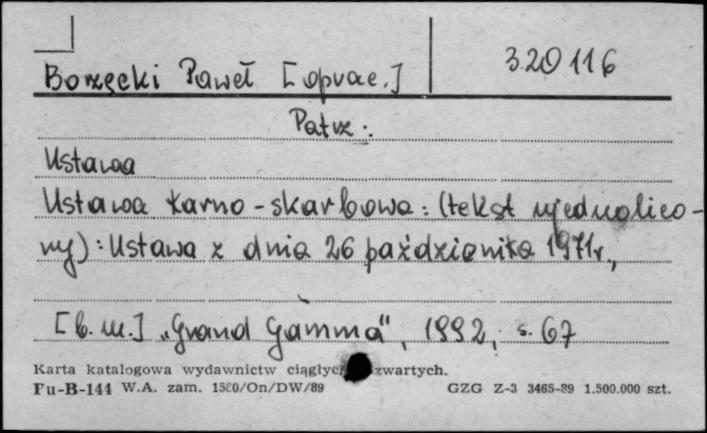 Borzęcki Paweł [oprac.]
3.20116
Patrz:
Ustawa
Ustawa karno-skarbowa: (tekst ujednolico-
ny): Ustawa z dnia 26 października 1971r.,
[b.m.] „Grand Gamma", 1992, s. 67
Karta katalogowa wydawnictw ciągłych zwartych.
Fu-B-144 W.A. zam. 1580/On/DW/89 GZG Z-3 3465-89 1.500.000 szt.